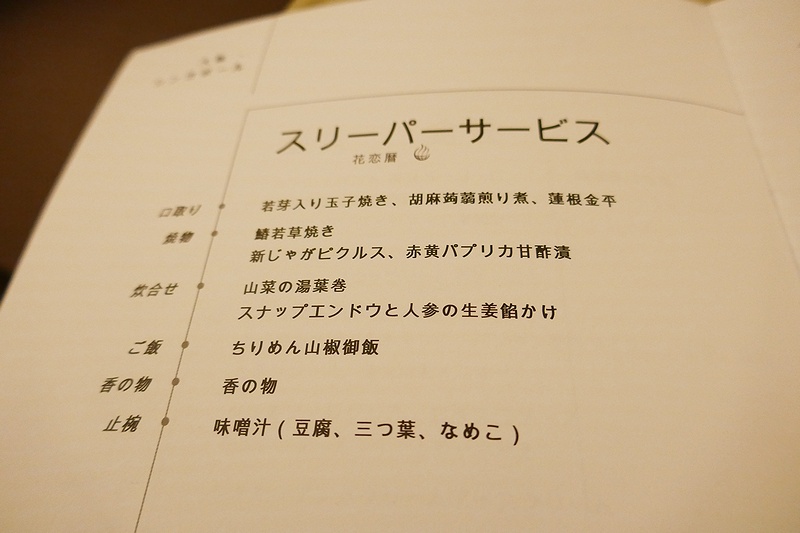 スリーパーサービス
花恋暦
口取り 若芽入り玉子焼き、胡麻蒟蒻煎り煮、蓮根金平
焼物 鰆若草焼き
新じゃがピクルス、赤黄パプリカ甘酢漬
炊合せ 山菜の湯葉巻
スナップエンドウと人参の生姜餡かけ
ご飯 ちりめん山椒御飯
香の物 香の物
止椀 味噌汁 ( 豆腐、三つ葉、なめこ )